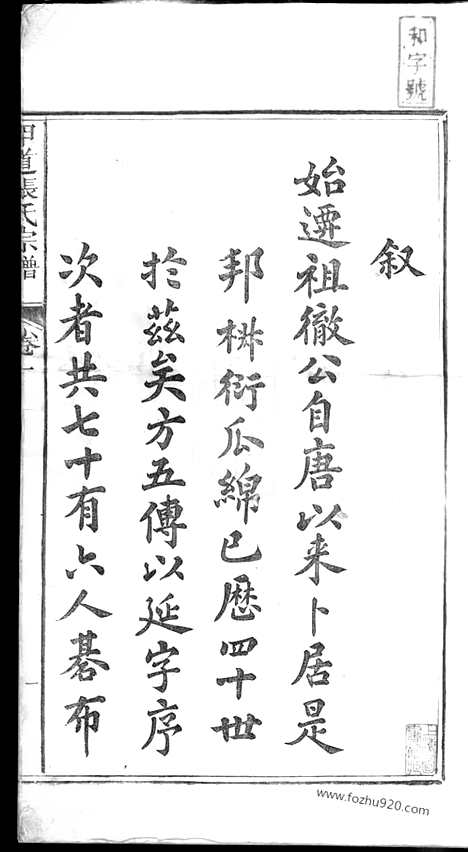 和字號
叙
始遷祖徹公自唐以来卜居是
邦椒衍瓜綿已歷四十世
於茲矣方五傳以延字序
次者共七十有六人碁布
道張氏宗譜
卷一
一
www.fozhu920.com